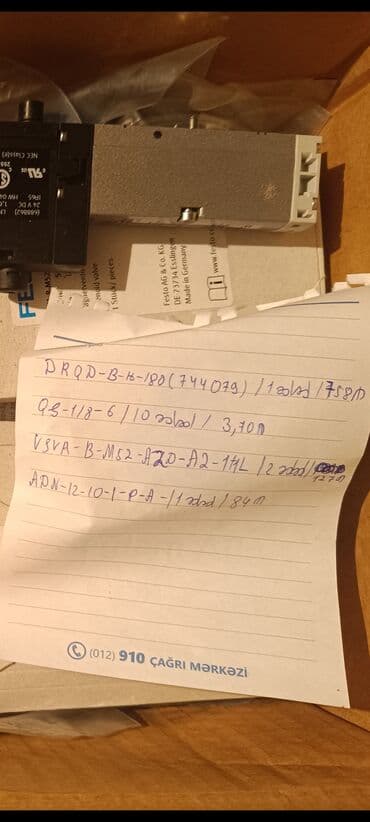 NEC Class(e)
IP65
24 V DC
FES
Festo AG & Co. KG
DE-73734 Esslingen
Made in Germany
DRQD-B-16-180 (744079) / 1 ədəd / 758₼
QS-1/8-6 / 10 ədəd / 3,70₼
VSVA-B-M52-AZD-A2-1T1L / 2 ədəd /
127₼
ADN-12-10-I-P-A- / 1 ədəd / 84₼
(012) 910 ÇAĞRI MƏRKƏZİ